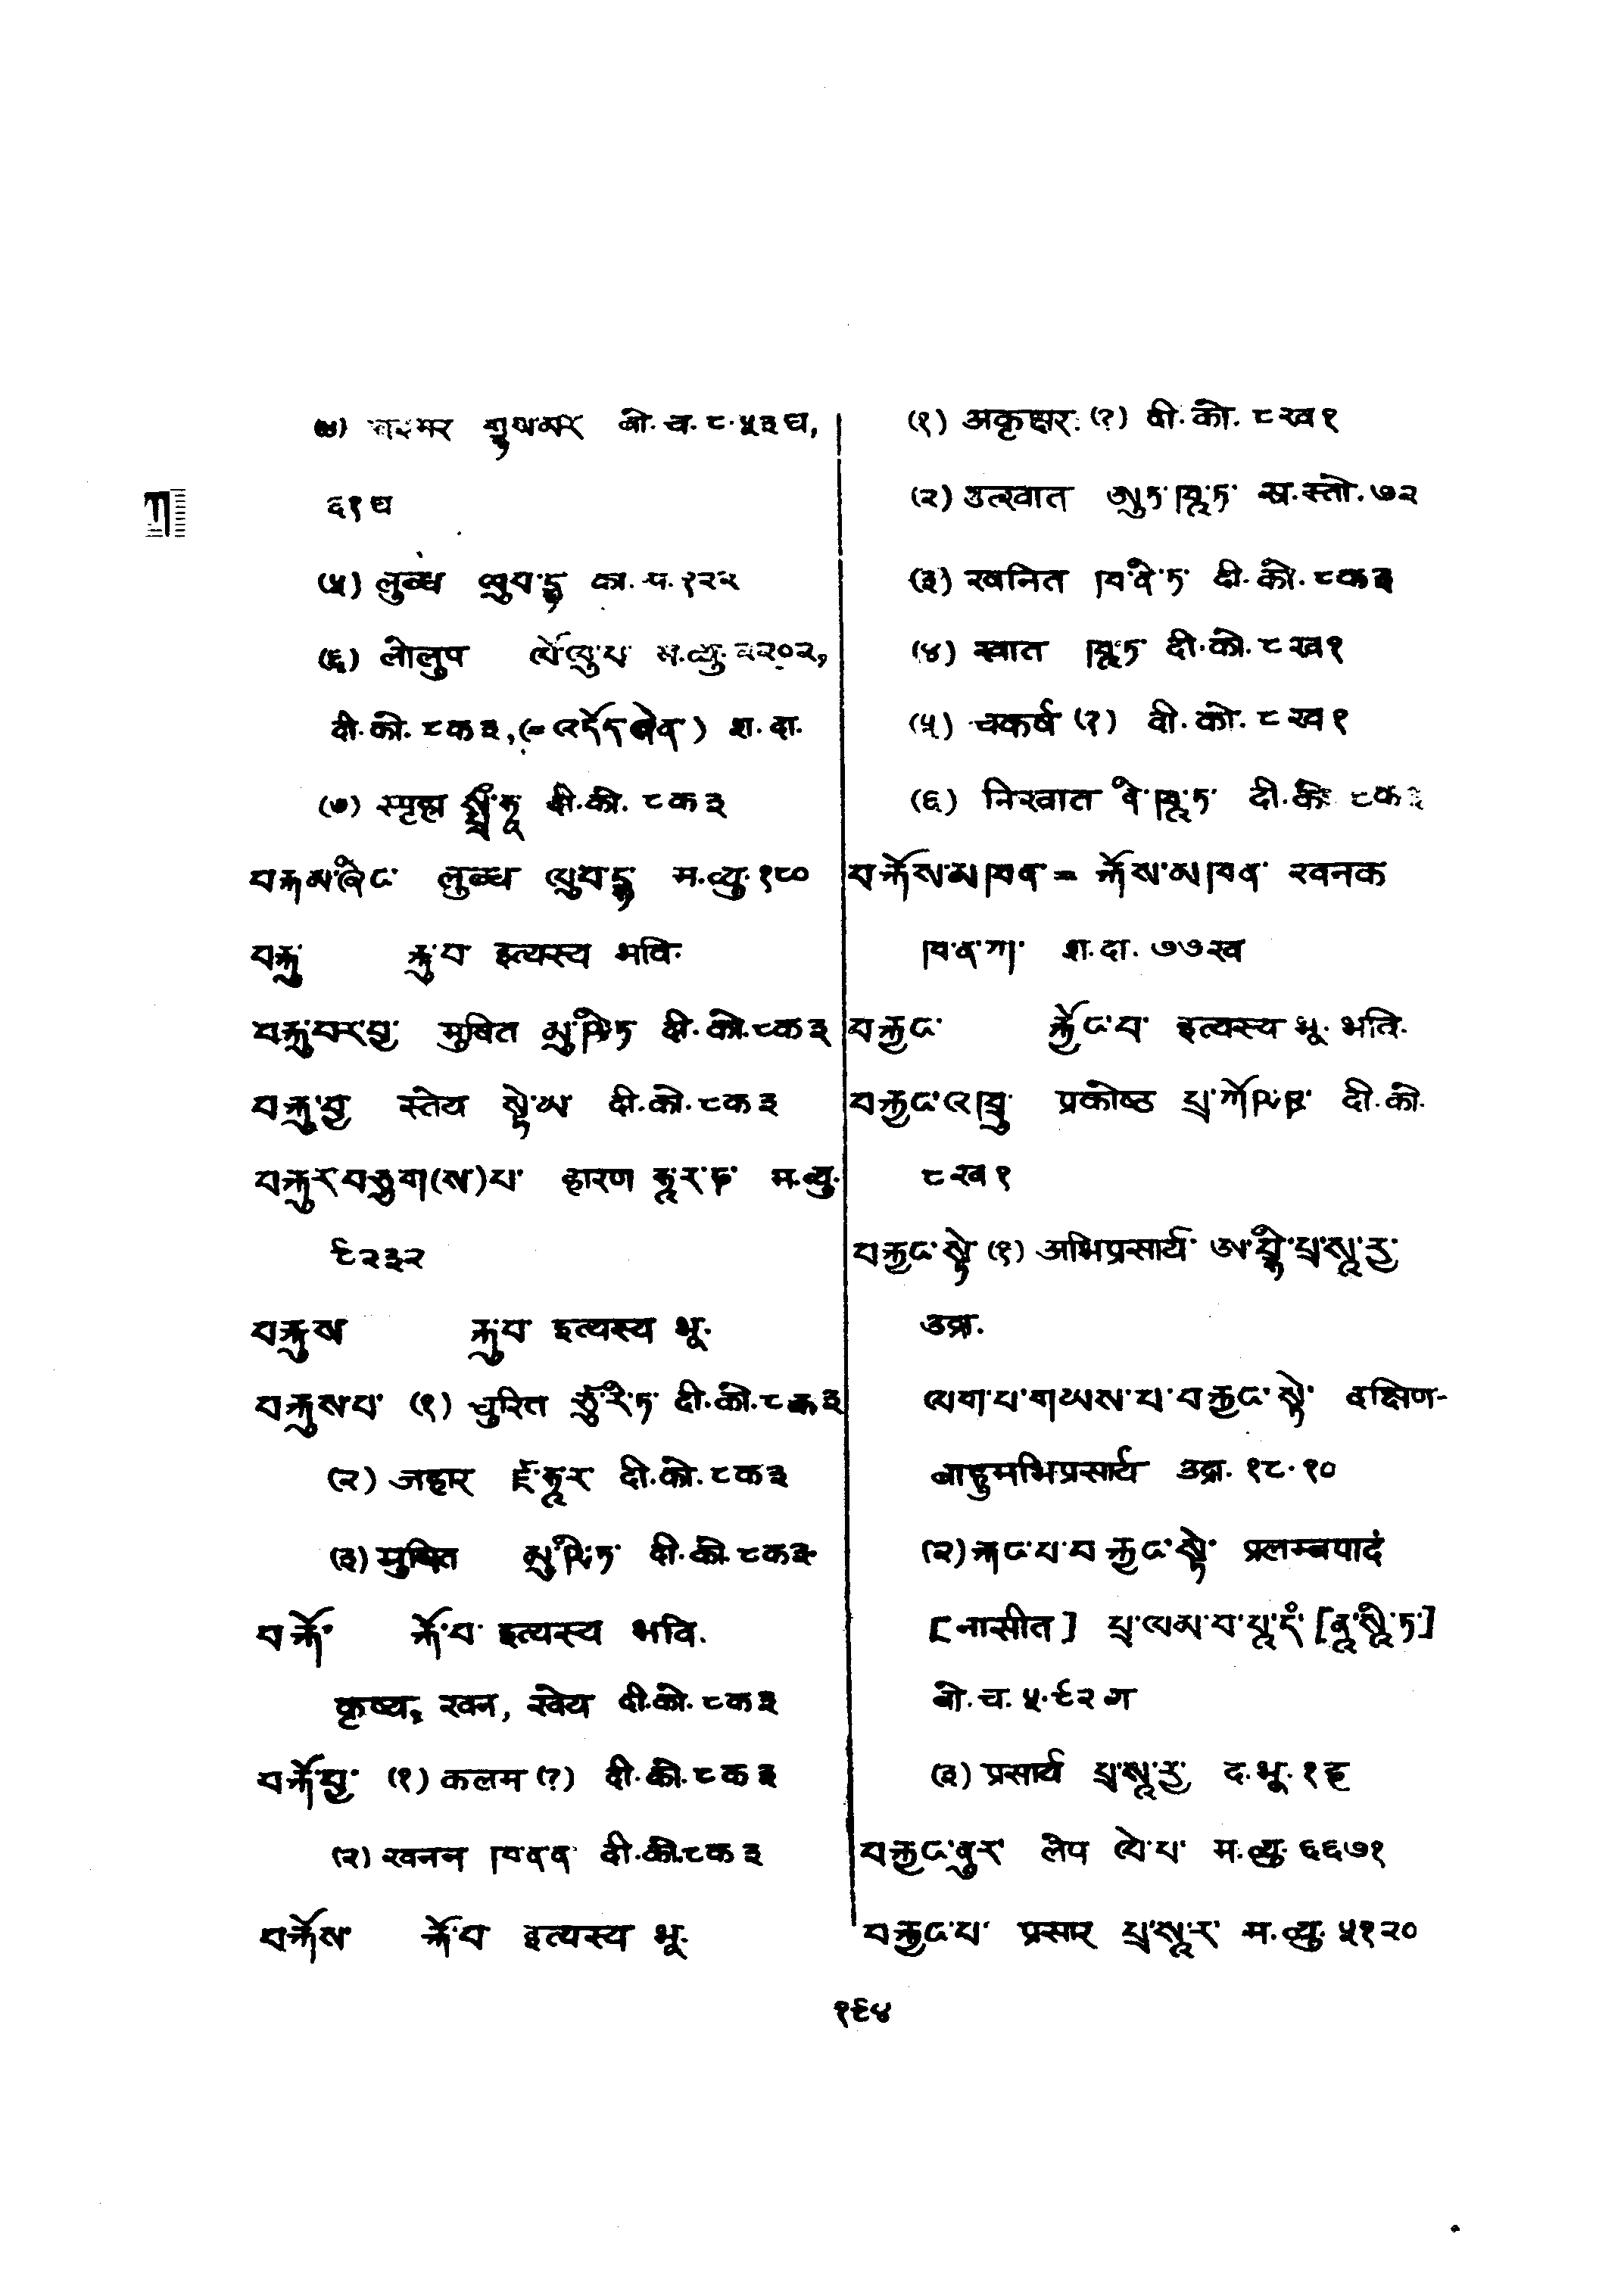 ६१ घ
(५) लुब्ध ལུབ་དྷ का. प. १२५
(६) लोलुप ལོ་ལུ་པ म. व्यु. २२०२,
दी. को. ८ क ३, (= འདོད་ཤེན་) श. दा.
(७) स्पृहा སྤྲྀ་ཧཱ दी. को. ८ क ३
བརྐམ་ཞིང་ लुब्ध ལུབ་དྷ म. व्यु. १८०
བརྐུ རྐུ་བ इत्यस्य भवि.
བརྐུ་བར་བྱ་ मुषित མུ་ཥི་ཏ दी. को. ८ क ३
བརྐུ་བྱ स्तेय སྟེ་ཡ दी. को. ८ क ३
བརྐུར་བཅུག(ས)་པ་ हारण ཧཱ་ར་ཎ་ म. व्यु.
९२३२
བརྐུས རྐུ་བ इत्यस्य भू.
བརྐུས་པ་ (१) चुरित ཙུ་རི་ཏ་ दी. को. ८ क ३
(२) जहार ཛ་ཧཱ་ར दी. को. ८ क ३
(३) मुषित མུ་ཥི་ཏ་ दी. को. ८ क ३
བརྐོ་ རྐོ་བ་ इत्यस्य भवि.
कृष्य, खन, खेय दी. को. ८ क ३
བརྐོ་བྱ་ (१) कलम (?) दी. को. ८ क ३
(२) खनन ཁ་ན་ན་ दी. को. ८ क ३
བརྐོས་ རྐོ་བ इत्यस्य भू.
(१) अकृक्षर: (?) दी. को. ८ ख १
(२) उत्खात ཨུཏ་ཁཱ་ཏ་ स्र. स्तो. ७२
(३) खनित ཁ་ནི་ཏ་ दी. को. ८ क ३
(४) खात ཁཱ་ཏ་ दी. को. ८ ख १
(५) चकर्ष (?) दी. को. ८ ख १
(६) निखात ནི་ཁཱ་ཏ་ दी. को. ८ क ३
བརྐོས་མ་ཁན་ = རྐོས་མ་ཁན་ खनक
ཁ་ན་ཀ་ श. दा. ७७ ख
བརྐྱང་ རྐྱོང་བ་ इत्यस्य भू. भवि.
བརྐྱང་འཁྲུ་ प्रकोष्ठ པྲ་ཀོཥྛ་ दी. को.
८ ख १
བརྐྱང་སྟེ (१) अभिप्रसार्य ཨ་བྷི་པྲ་སཱརྱ་
उद्रा.
ལག་པ་གཡས་པ་བརྐྱང་སྟེ་ दक्षिण-
बाहुमभिप्रसार्य उद्रा. १८.१०
(२) རྐང་པ་བརྐྱང་སྟེ་ प्रलम्बपादं
[नासीत] པྲ་ལམ་བ་པཱ་དཾ [ནཱ་སཱི་ཏ་]
बो. च. ५.९२ ग
(३) प्रसार्य པྲ་སཱརྱ་ द. भू. १ ह
བརྐྱང་ནུར་ लेप ལེ་པ་ म. व्यु. ६६७१
བརྐྱང་པ་ प्रसार པྲ་སཱ་ར་ म. व्यु. ५१२०
१९४